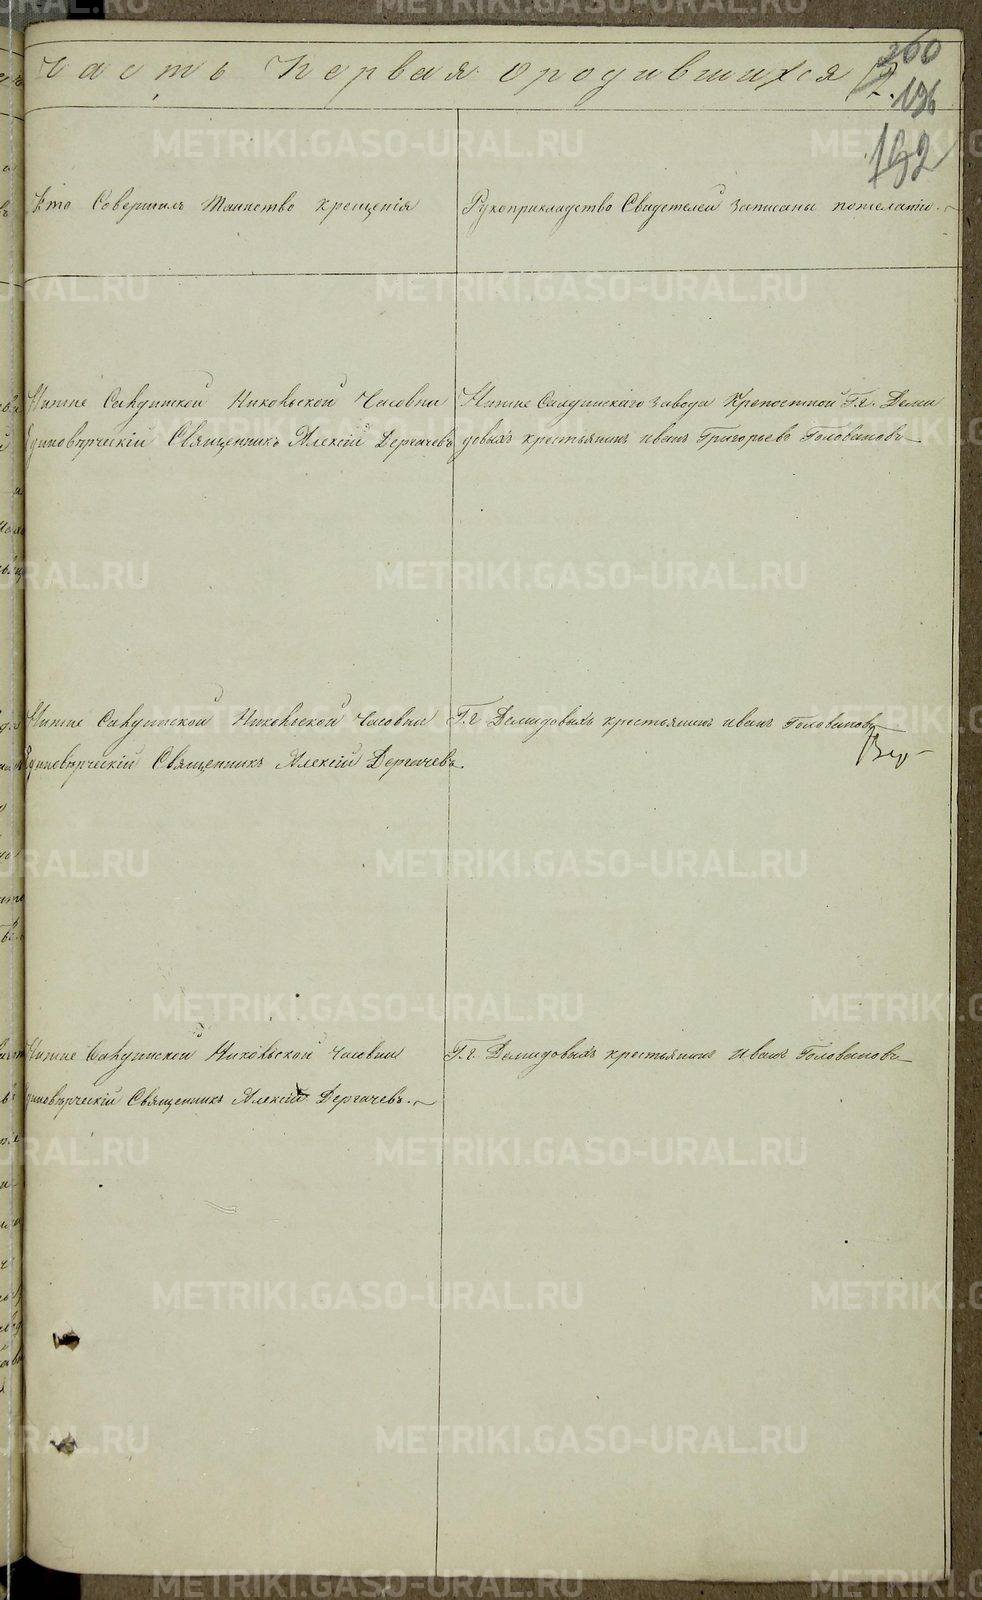 Часть Первая о родившихся
260
2.
196
192
Кто Совершилъ Таинство крещенія
Рукоприкладство Свидетелей Записаны пожеланію.
Нижне Салдинской Никольской Часовни
Единоверческій Священникъ Алексій Дергачевъ
Нижне Салдинскаго завода Крепостной Г.г. Деми
довыхъ крестьянинъ иванъ Григорьевъ Головановъ
Нижне Салдинской Никольской Часовни
Единоверческій Священникъ Алексій Дергачевъ.
Г.г Демидовыхъ крестьянинъ иванъ Головановъ
Нижне Салдинской Никольской Часовни
Единоверческій Священникъ Алексій Дергачевъ.
Г.г. Демидовыхъ крестьянинъ Иванъ Головановъ
METRIKI.GASO-URAL.RU